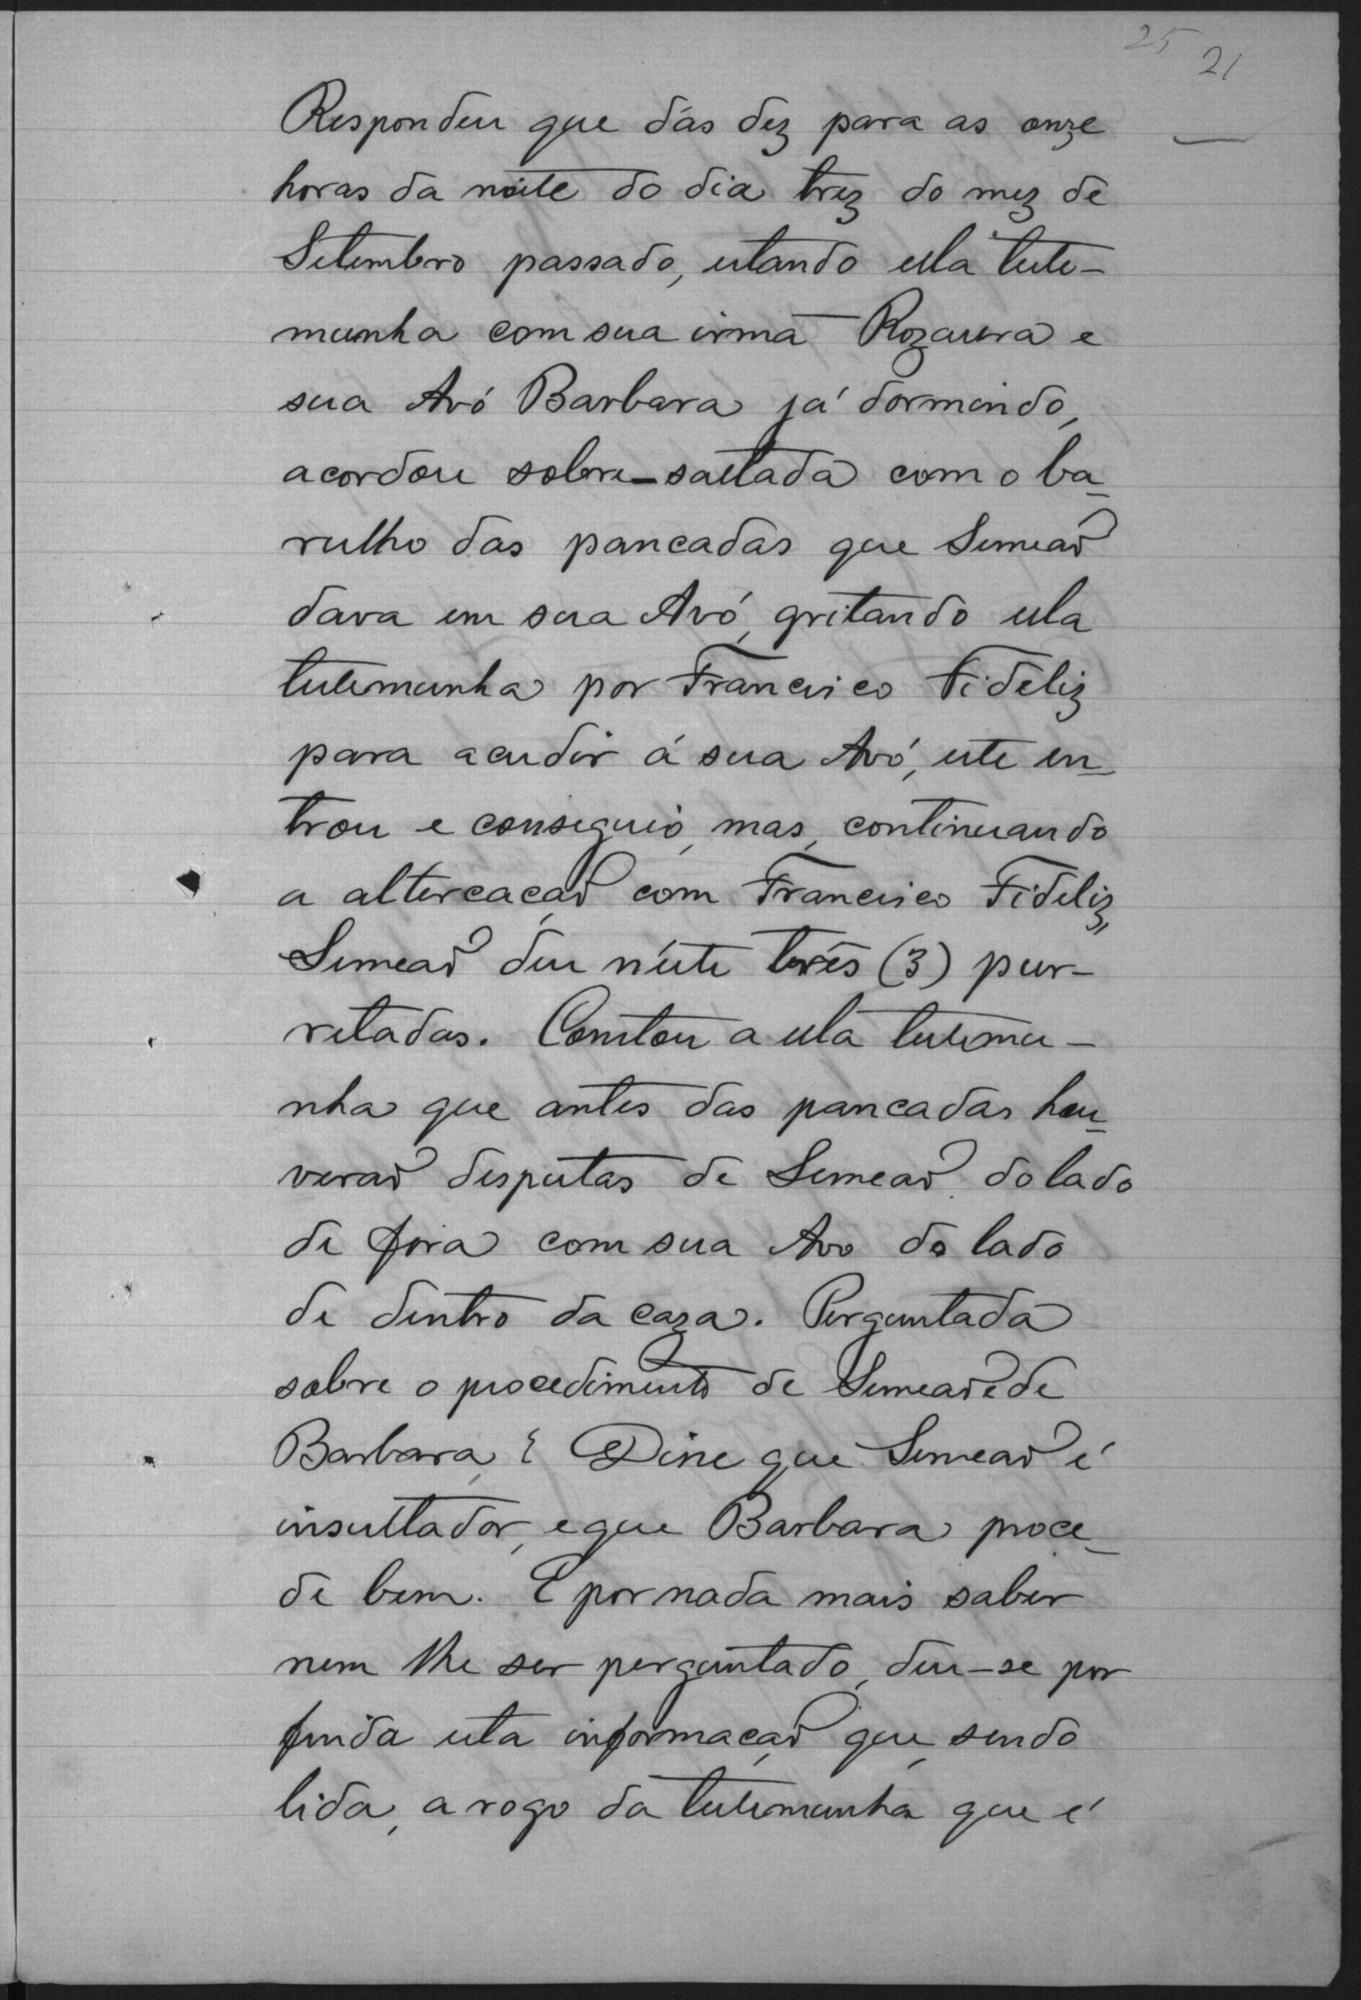 25 21
Respondeu que das dez para as onze
horas da noite do dia trez do mez de
Setembro passado, estando ella teste-
munha com sua irmã Rozaura e
sua Avó Barbara já dormindo,
acordou sobre-saltada com o ba-
rulho das pancadas que Simeaõ
dava em sua Avó, gritando ella
testemunha por Francisco Fideliz
para acudir á sua Avó, este en-
trou e conseguio, mas, continuando
a altercaçaõ com Francisco Fideliz,
Simeaõ deu n'este três (3) pur-
retadas. Constou a ella testemu-
nha que antes das pancadas hou-
veraõ desputas de Simeaõ do lado
de fora com sua Avo do lado
de dentro da caza. Perguntada
sobre o procedimento de Simeaõ e de
Barbara? Disse que Simeaõ é
insultador, e que Barbara proce-
de bem. E por nada mais saber
nem lhe ser perguntado, deu-se por
finda esta informaçaõ que, sendo
lida, a rogo da testemunha que é